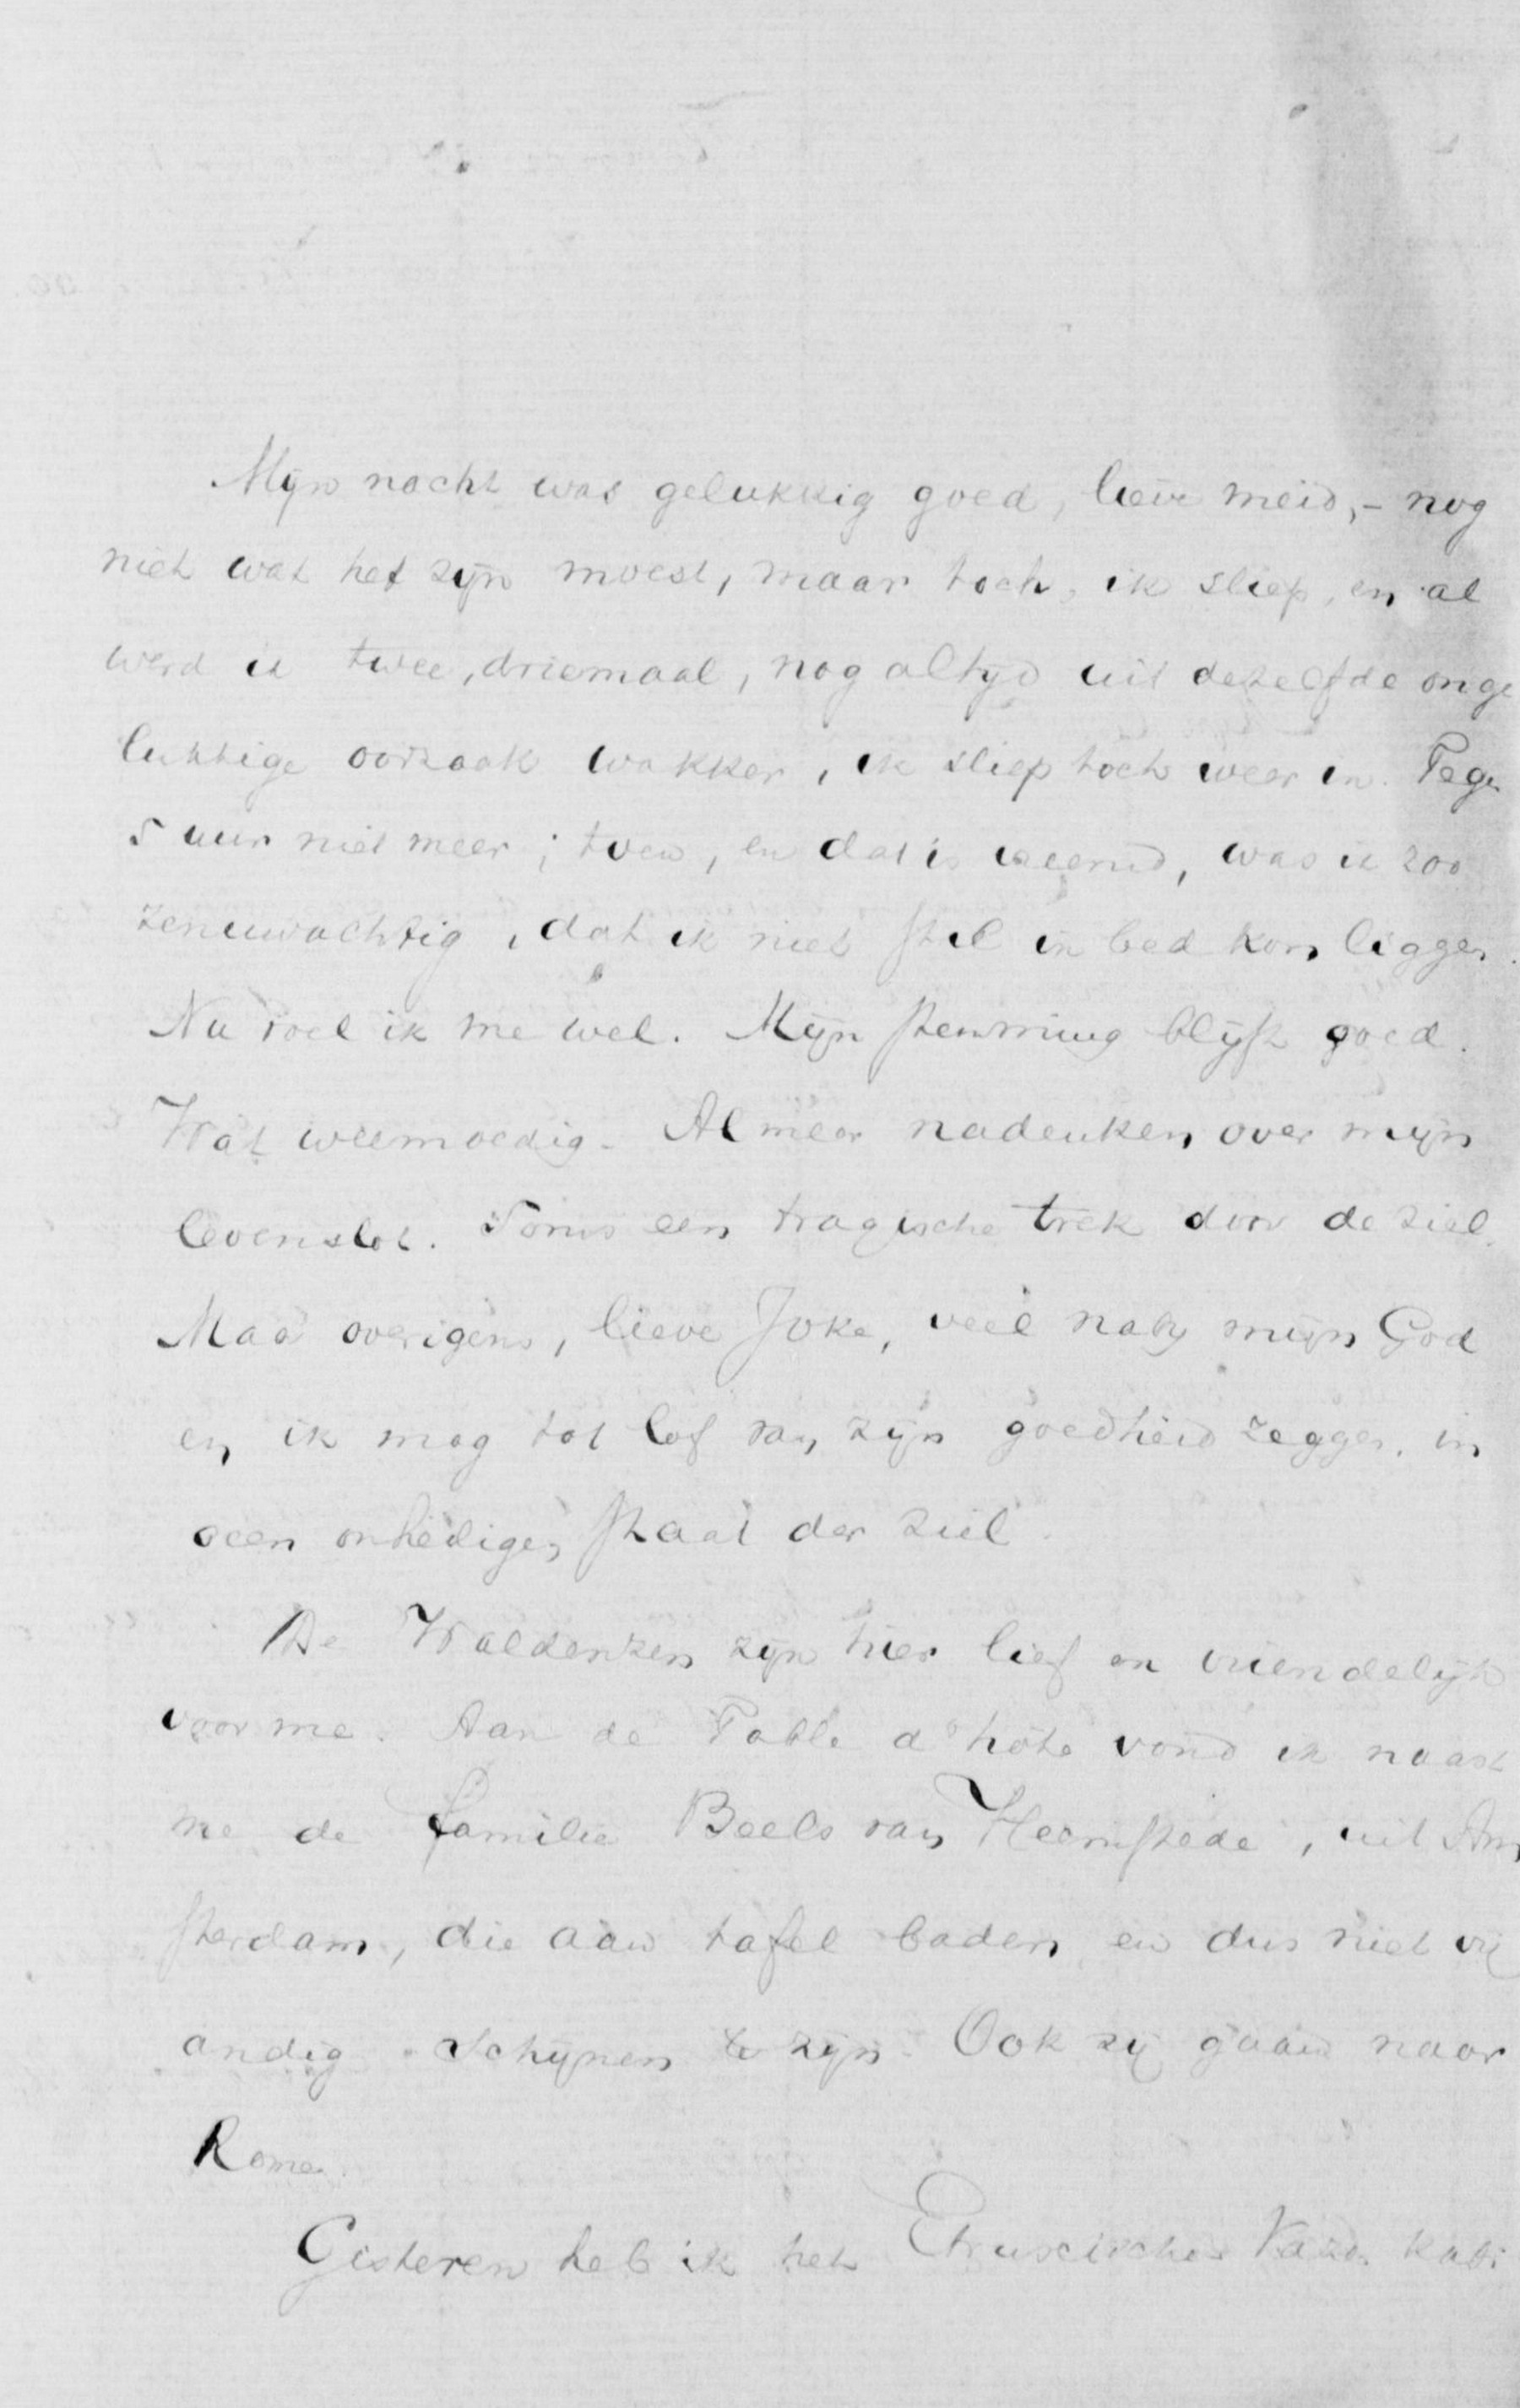 Mijn nacht was gelukkig goed, lieve meid, - nog
niet wat het zijn moest, maar toch, ik sliep, en al
werd ik twee, driemaal, nog altijd uit dezelfde onge
lukkige oorzaak wakker, ik sliep toch weer in. Tegen
5 uur niet meer; toen, en dat is vreemd, was ik zoo
zenuwachtig, dat ik niet stil in bed kon liggen.
Nu voel ik me wel. Mijn stemming blijft goed.
Wat weemoedig. Al meer nadenken over mijn
levenslot. Soms een tragische trek door de ziel.
Maar overigens, lieve Joke, veel nabij mijn God
en ik mag tot lof van zijn goedheid zeggen, in
geen onheiligen staat der ziel.
De Waldenzen zijn hier lief en vriendelijk
voor me. Aan de Table d'hôte vond ik naast
me de familie Beels van Heemstede, uit Am
sterdam, die aan tafel baden, en dus niet vij
andig schijnen te zijn. Ook zij gaan naar
Rome.
Gisteren heb ik het Etruscische Vazen kabi